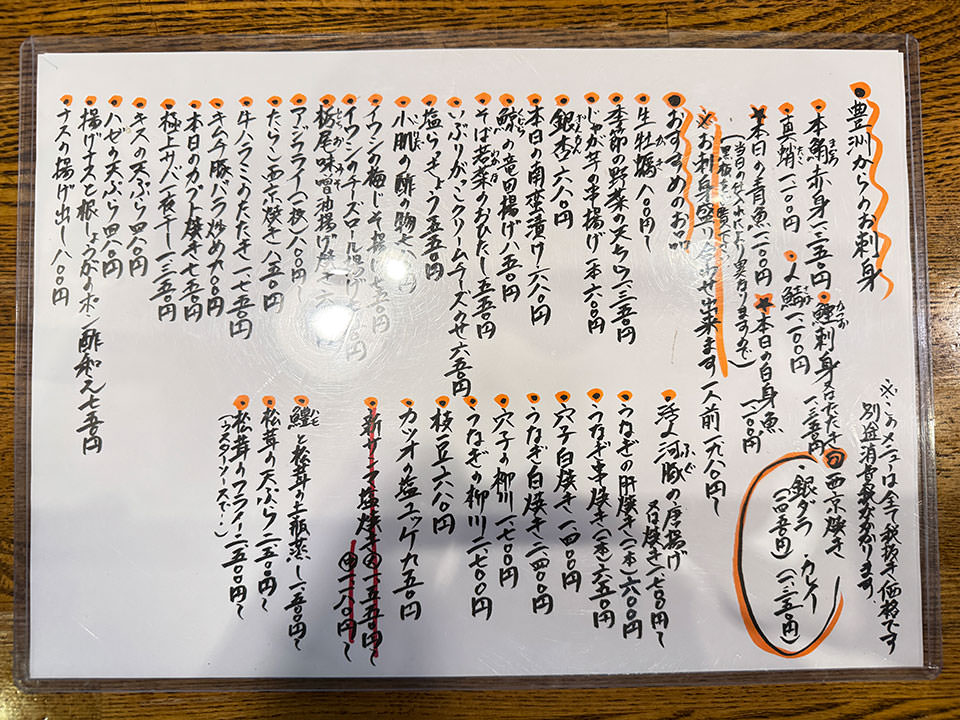 豊洲からのお刺身
本鮪赤身一二三五〇円
真蛸一一〇〇円
〆鯖一、一〇〇円
鰹刺身又はたたき一三五〇円
本日の青魚一一〇〇円
本日の白身魚一二〇〇円
(当日の仕入れにより異なりますので
黒板をご覧下さい)
※お刺身盛り合わせ出来ます一人前一九八〇円〜
※このメニューは全て税抜き価格です
別途消費税がかかります。
旬西京焼き
・銀ダラ
・カレイ
(一、三五〇円)
おすすめのお品
生牡蠣八〇〇円〜
季節の野菜の天ぷら一三五〇円
じゃが芋の串揚げ一本六〇〇円
銀杏六八〇円
本日の南蛮漬け六八〇円
鯨の竜田揚げ八五〇円
そば若菜のおひたし五五〇円
いぶりがっこクリームチーズのせ六五〇円
塩らっきょう五五〇円
小肌の酢の物
イワシの梅じそ揚げ七五〇円
イワシのチーズロール揚げ
栃尾味噌油揚げ焼き
アジフライ(一枚)八〇〇円〜
たらこ西京焼き八五〇円
牛ハラミのたたき一七五〇円
キムチ豚バラ炒め九〇〇円
本日のカブト焼き七五〇円
極上サバ一夜干し一三五〇円
キスの天ぷら四八〇円
ハゼの天ぷら四八〇円
揚げナスと根しょうがのポン酢和え七五〇円
ナスの揚げ出し八〇〇円
河豚の唐揚げ
又は焼き一七〇〇円〜
うなぎの肝焼き(一本)六〇〇円
うなぎ串焼き(一本)六五〇円
穴子白焼き一四〇〇円
うなぎ白焼き二四〇〇円
穴子の柳川一七〇〇円
うなぎの柳川二七〇〇円
枝豆六八〇円
カツオの塩ユッケ九五〇円
新サンマ塩焼き
鱧と松茸の土瓶蒸し一五〇〇円〜
松茸の天ぷら二五〇〇円〜
松茸のフライ二五〇〇円〜
(ウスターソースで)